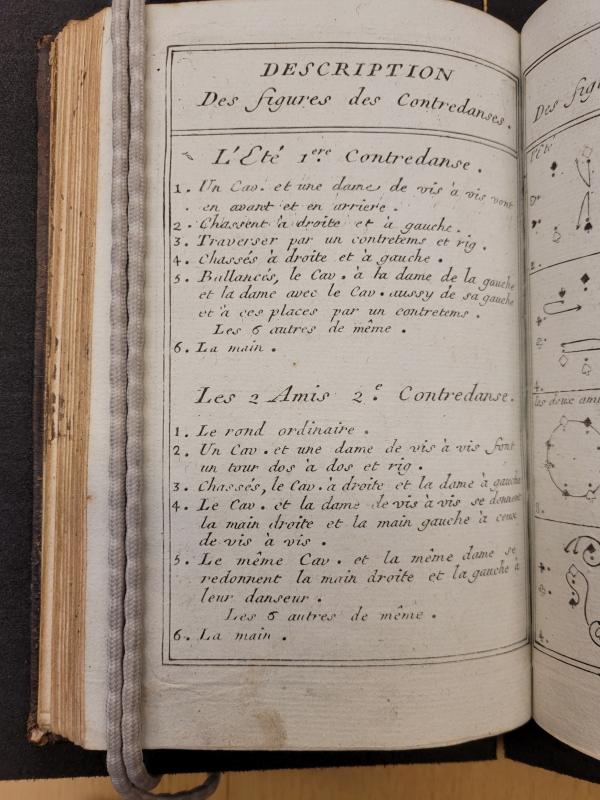 DESCRIPTION
Des figures des Contredanses.
L'Eté 1.ere Contredanse.
1. Un Cav. et une dame de vis à vis vont
en avant et en arriere.
2. Chassent à droite et à gauche.
3. Traverser par un contretems et rig.
4. Chassés à droite et à gauche.
5. Ballancés, le Cav. à la dame de la gauche
et la dame avec le Cav. aussy de sa gauche
et à ces places par un contretems.
Les 6 autres de même.
6. La main.
Les 2 Amis 2.e Contredanse.
1. Le rond ordinaire.
2. Un Cav. et une dame de vis à vis font
un tour dos à dos et rig.
3. Chassés, le Cav. à droite et la dame à gauche
4. Le Cav. et la dame de vis à vis se donnent
la main droite et la main gauche à ceux
de vis à vis.
5. Le même Cav. et la même dame se
redonnent la main droite et la gauche à
leur danseur.
Les 6 autres de même.
6. La main.
Des figu
l'Eté
2.
4.
les deux ami
3.
4.